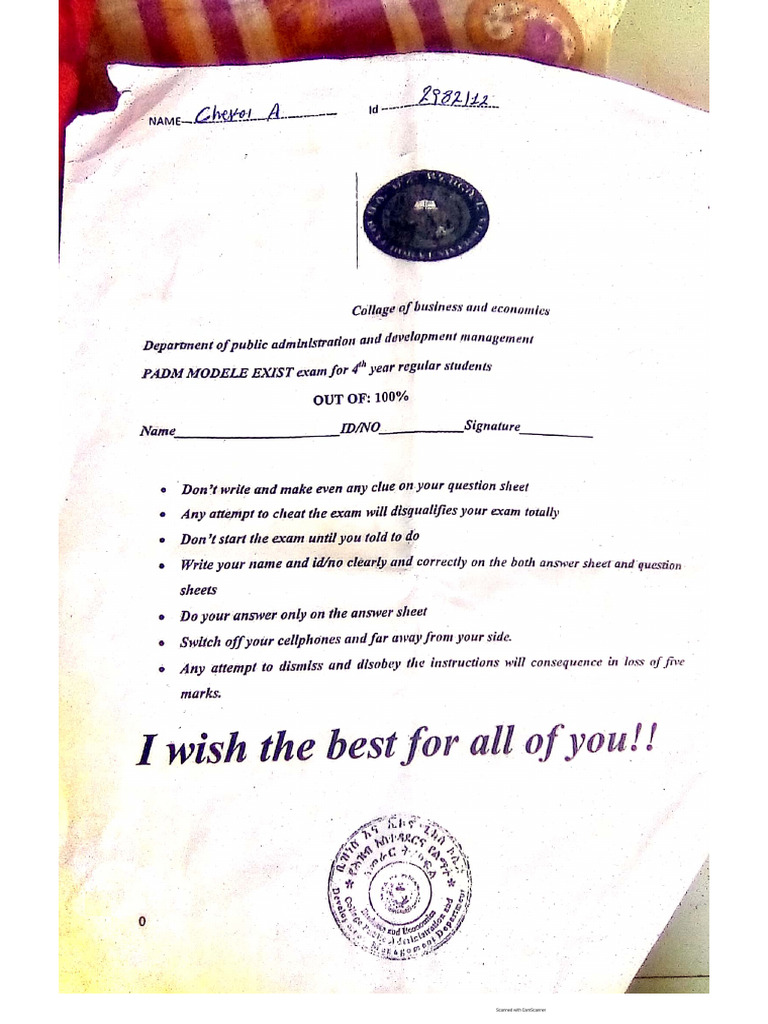 NAME Cheror A Id 2982/12
Collage of business and economics
Department of public administration and development management
PADM MODELE EXIST exam for 4th year regular students
OUT OF: 100%
Name____________________ID/NO__________Signature_________
• Don't write and make even any clue on your question sheet
• Any attempt to cheat the exam will disqualifies your exam totally
• Don't start the exam until you told to do
• Write your name and id/no clearly and correctly on the both answer sheet and question
sheets
• Do your answer only on the answer sheet
• Switch off your cellphones and far away from your side.
• Any attempt to dismiss and disobey the instructions will consequence in loss of five
marks.
I wish the best for all of you!!
College
Business and Economics
Public Administration and
Development Management Department
0
Scanned with CamScanner